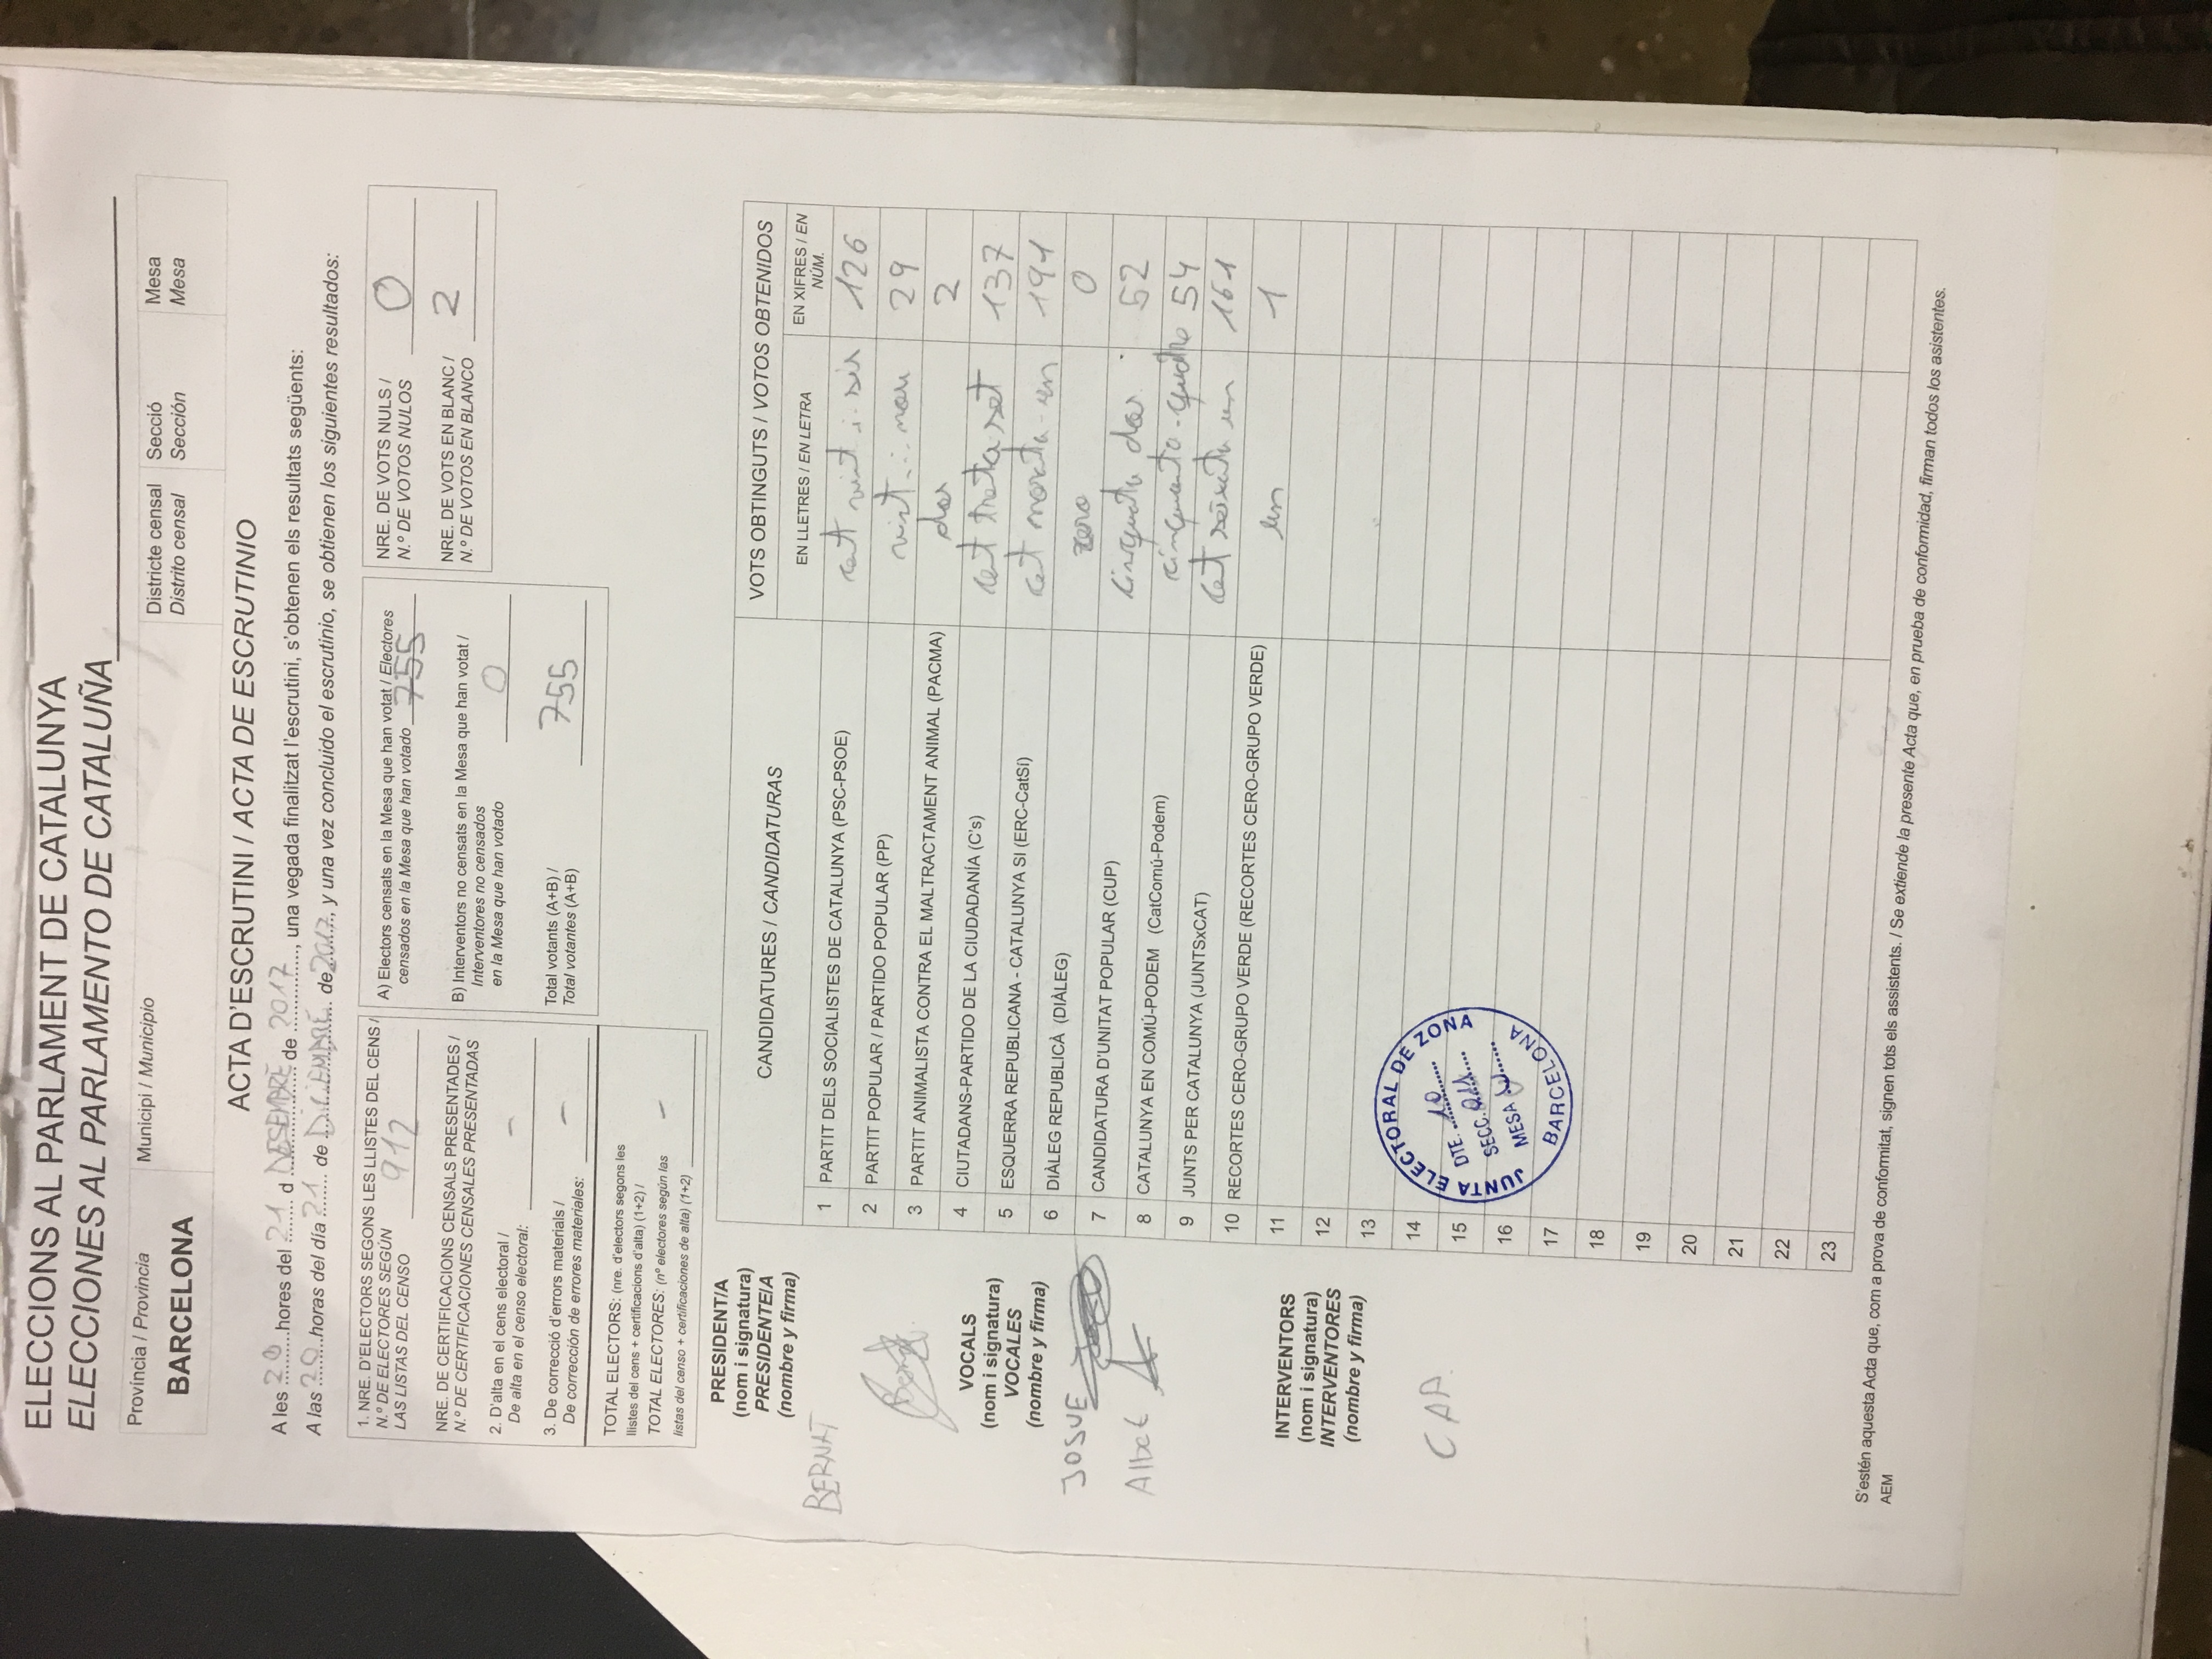 ELECCIONS AL PARLAMENT DE CATALUNYA
ELECCIONES AL PARLAMENTO DE CATALUÑA
Província / Provincia
BARCELONA
Municipi / Municipio
Districte censal
Distrito censal
Secció
Sección
Mesa
Mesa
ACTA D'ESCRUTINI / ACTA DE ESCRUTINIO
A les 20 hores del 21 d DESEMBRE de 2017, una vegada finalitzat l'escrutini, s'obtenen els resultats següents:
A las 20 horas del día 21 de DICIEMBRE de 2017, y una vez concluido el escrutinio, se obtienen los siguientes resultados:
1. NRE. D'ELECTORS SEGONS LES LLISTES DEL CENS /
N.º DE ELECTORES SEGÚN
LAS LISTAS DEL CENSO 912
NRE. DE CERTIFICACIONS CENSALS PRESENTADES /
N.º DE CERTIFICACIONES CENSALES PRESENTADAS
2. D'alta en el cens electoral /
De alta en el censo electoral: -
3. De correcció d'errors materials /
De corrección de errores materiales: -
TOTAL ELECTORS: (nre. d'electors segons les
llistes del cens + certificacions d'alta) (1+2) /
TOTAL ELECTORES: (nº electores según las
listas del censo + certificaciones de alta) (1+2) -
A) Electors censats en la Mesa que han votat / Electores
censados en la Mesa que han votado 755
B) Interventors no censats en la Mesa que han votat /
Interventores no censados
en la Mesa que han votado 0
Total votants (A+B) /
Total votantes (A+B) 755
NRE. DE VOTS NULS /
N.º DE VOTOS NULOS 0
NRE. DE VOTS EN BLANC /
N.º DE VOTOS EN BLANCO 2
PRESIDENT/A
(nom i signatura)
PRESIDENTE/A
(nombre y firma)
BERNAT
VOCALS
(nom i signatura)
VOCALES
(nombre y firma)
JOSUE
Albet
INTERVENTORS
(nom i signatura)
INTERVENTORES
(nombre y firma)
CAP.
CANDIDATURES / CANDIDATURAS
VOTS OBTINGUTS / VOTOS OBTENIDOS
EN LLETRES / EN LETRA
EN XIFRES / EN
NÚM.
1 PARTIT DELS SOCIALISTES DE CATALUNYA (PSC-PSOE) cent vint i sis 126
2 PARTIT POPULAR / PARTIDO POPULAR (PP) vint i nou 29
3 PARTIT ANIMALISTA CONTRA EL MALTRACTAMENT ANIMAL (PACMA) dos 2
4 CIUTADANS-PARTIDO DE LA CIUDADANÍA (C's) cent trenta set 137
5 ESQUERRA REPUBLICANA - CATALUNYA SI (ERC-CatSí) cent noranta-un 191
6 DIÀLEG REPUBLICÀ (DIÀLEG) zero 0
7 CANDIDATURA D'UNITAT POPULAR (CUP) cinquanta dos 52
8 CATALUNYA EN COMÚ-PODEM (CatComú-Podem) cinquanta-quatre 54
9 JUNTS PER CATALUNYA (JUNTSxCAT) cent seixanta un 161
10 RECORTES CERO-GRUPO VERDE (RECORTES CERO-GRUPO VERDE) un 1
11
12
13
14
15
16
17
18
19
20
21
22
23
JUNTA ELECTORAL DE ZONA
DTE. 10
SECC. 011
MESA
BARCELONA
S'estén aquesta Acta que, com a prova de conformitat, signen tots els assistents. / Se extiende la presente Acta que, en prueba de conformidad, firman todos los asistentes.
AEM